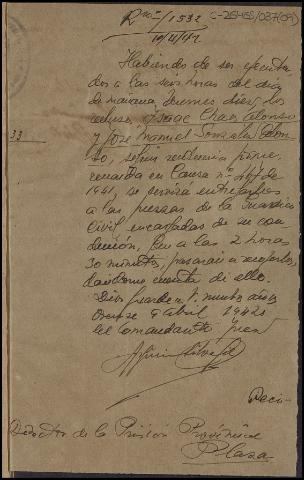 Rno-/1532
C-25458/037(09)
10/4/42
Habiendo de ser ejecuta-
dos a las seis horas del día
de mañana, Jueves diez, los
reclusos, Isaac Chao Alonso
y José Manuel Gonzalez Alon-
so, según sentencia pronun-
ciada en Causa nº 417 de
33
1941, se servirá entregarlos
a las fuerzas de la Guardia
Civil encargadas de su con-
ducción, que a las 2 horas
30 minutos, pasarán a recogerlos,
dandome cuenta de ello.
Dios guarde a V. muchos años
Orense 9 abril 1942
el Comandante Juez
Director de la Prisión Provincial
Plaza.